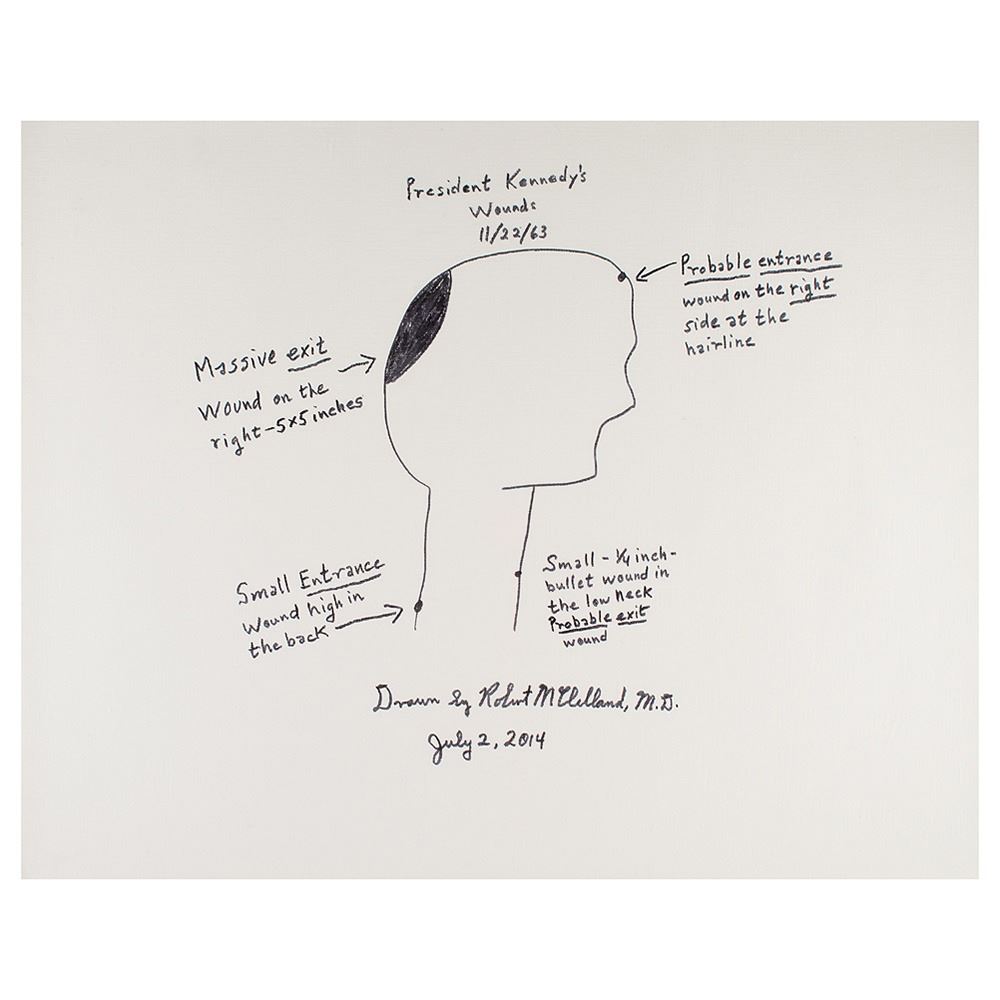 President Kennedy's
Wounds
11/22/63
Probable entrance
wound on the right
side at the
hairline
Massive exit
Wound on the
right-5x5 inches
Small Entrance
Wound high in
the back
Small - 1/4 inch-
bullet wound in
the low neck
Probable exit
wound
Drawn by Robert McClelland, M.D.
July 2, 2014